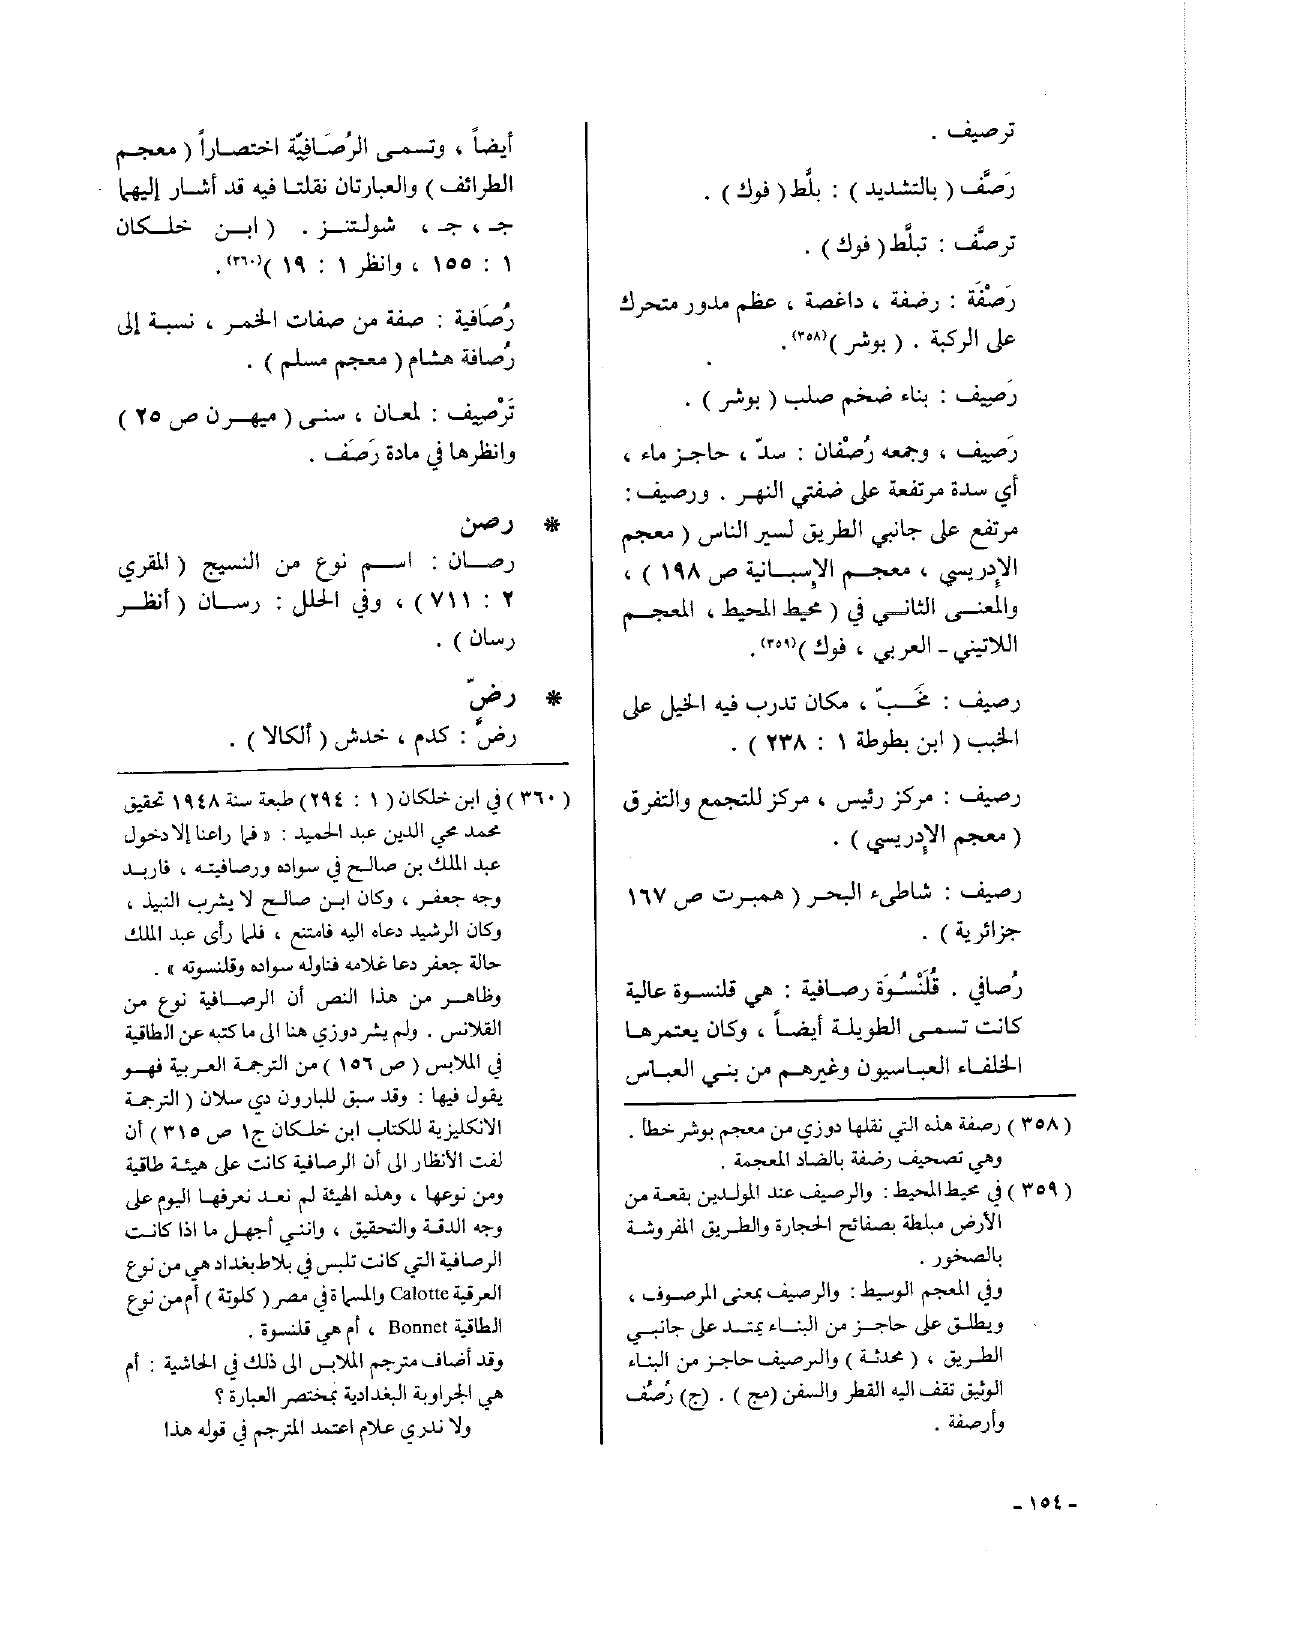 ترصيف .
رَصَّف ( بالتشديد ) : بلَّط ( فوك ) .
ترصَّف : تبلَّط ( فوك ) .
رَصْفَة : رضفة ، داغصة ، عظم مدور متحرك
على الركبة . ( بوشر )(٣٥٨).
رَصِيف : بناء ضخم صلب ( بوشر ) .
رَصِيف ، وجمعه رُصْفان : سدّ ، حاجز ماء ،
أي سدة مرتفعة على ضفتي النهر . ورصيف :
مرتفع على جانبي الطريق لسير الناس ( معجم
الإدريسي ، معجم الإسبانية ص ١٩٨ ) ،
والمعنى الثاني في ( محيط المحيط ، المعجم
اللاتيني - العربي ، فوك )(٣٥٩).
رصيف : مَخَبّ ، مكان تدرب فيه الخيل على
الخبب ( ابن بطوطة ١ : ٢٣٨ ) .
رصيف : مركز رئيس ، مركز للتجمع والتفرق
( معجم الإدريسي ) .
رصيف : شاطىء البحر ( همبرت ص ١٦٧
جزائرية ) .
رُصافي . قُلَنْسُوَة رصافية : هي قلنسوة عالية
كانت تسمى الطويلة أيضاً ، وكان يعتمرها
الخلفاء العباسيون وغيرهم من بني العباس
( ٣٥٨ ) رصفة هذه التي نقلها دوزي من معجم بوشر خطأ .
وهي تصحيف رضفة بالضاد المعجمة .
( ٣٥٩ ) في محيط المحيط : والرصيف عند المولدين بقعة من
الأرض مبلطة بصفائح الحجارة والطريق المفروشة
بالصخور .
وفي المعجم الوسيط : والرصيف بمعنى المرصوف ،
ويطلق على حاجز من البناء يمتد على جانبي
الطريق ، ( محدثة ) والرصيف حاجز من البناء
الوثيق تقف اليه القطر والسفن ( مج ) . (ج) رُصُف
وأرصفة .
أيضاً ، وتسمى الرُصَافيّة اختصاراً ( معجم
الطرائف ) والعبارتان نقلتا فيه قد أشار إليها
جـ ، جـ ، شولتنز . ( ابن خلكان
١ : ١٥٥ ، وانظر ١ : ١٩ )(٣٦٠).
رُصَافية : صفة من صفات الخمر ، نسبة إلى
رُصافة هشام ( معجم مسلم ) .
تَرْصِيف : لمعان ، سنى ( ميهرن ص ٢٥ )
وانظرها في مادة رَصَف .
* رصن
رصان : اسم نوع من النسيج ( المقري
٢ : ٧١١ ) ، وفي الحلل : رسان ( أنظر
رسان ) .
* رضّ
رضَّ : كدم ، خدش ( ألكالا ) .
( ٣٦٠ ) في ابن خلكان ( ١ : ٢٩٤ ) طبعة سنة ١٩٤٨ تحقيق
محمد محي الدين عبد الحميد : « فما راعنا إلا دخول
عبد الملك بن صالح في سواده ورصافيته ، فاربد
وجه جعفر ، وكان ابن صالح لا يشرب النبيذ ،
وكان الرشيد دعاه اليه فامتنع ، فلما رأى عبد الملك
حالة جعفر دعا غلامه فناوله سواده وقلنسوته » .
وظاهر من هذا النص أن الرصافية نوع من
القلانس . ولم يشر دوزي هنا الى ما كتبه عن الطاقية
في الملابس ( ص ١٥٦ ) من الترجمة العربية فهو
يقول فيها : وقد سبق للبارون دي سلان ( الترجمة
الانكليزية للكتاب ابن خلكان ج١ ص ٣١٥ ) أن
لفت الأنظار الى أن الرصافية كانت على هيئة طاقية
ومن نوعها ، وهذه الهيئة لم نعد نعرفها اليوم على
وجه الدقة والتحقيق ، وانني أجهل ما اذا كانت
الرصافية التي كانت تلبس في بلاط بغداد هي من نوع
العرقية Calotte والمسماة في مصر ( كلوتة ) أم من نوع
الطاقية Bonnet ، أم هي قلنسوة .
وقد أضاف مترجم الملابس الى ذلك في الحاشية : أم
هي الجراوية البغدادية بمختصر العبارة ؟
ولا ندري علام اعتمد المترجم في قوله هذا
- ١٥٤ -